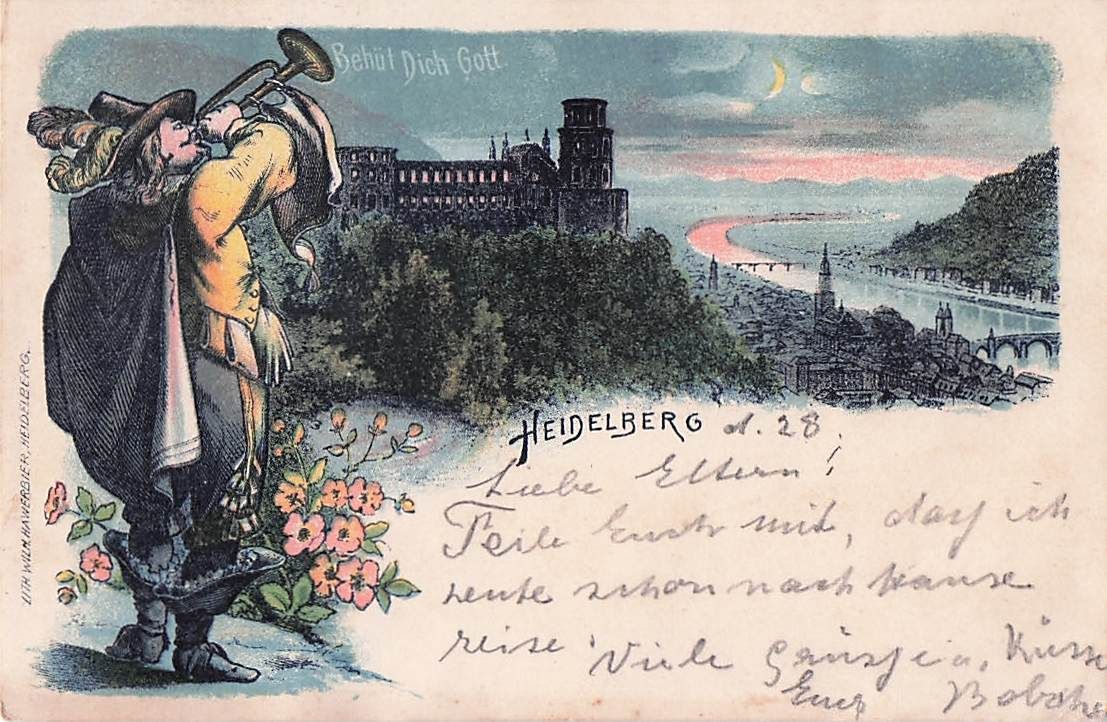 Behüt Dich Gott
HEIDELBERG d. 28.
Liebe Eltern!
Teile Euch mit, daß ich
heute schon nach Hause
reise. Viele Grüsse u. Küsse
Euer
LITH. WILH. HAWERBIER, HEIDELBERG.